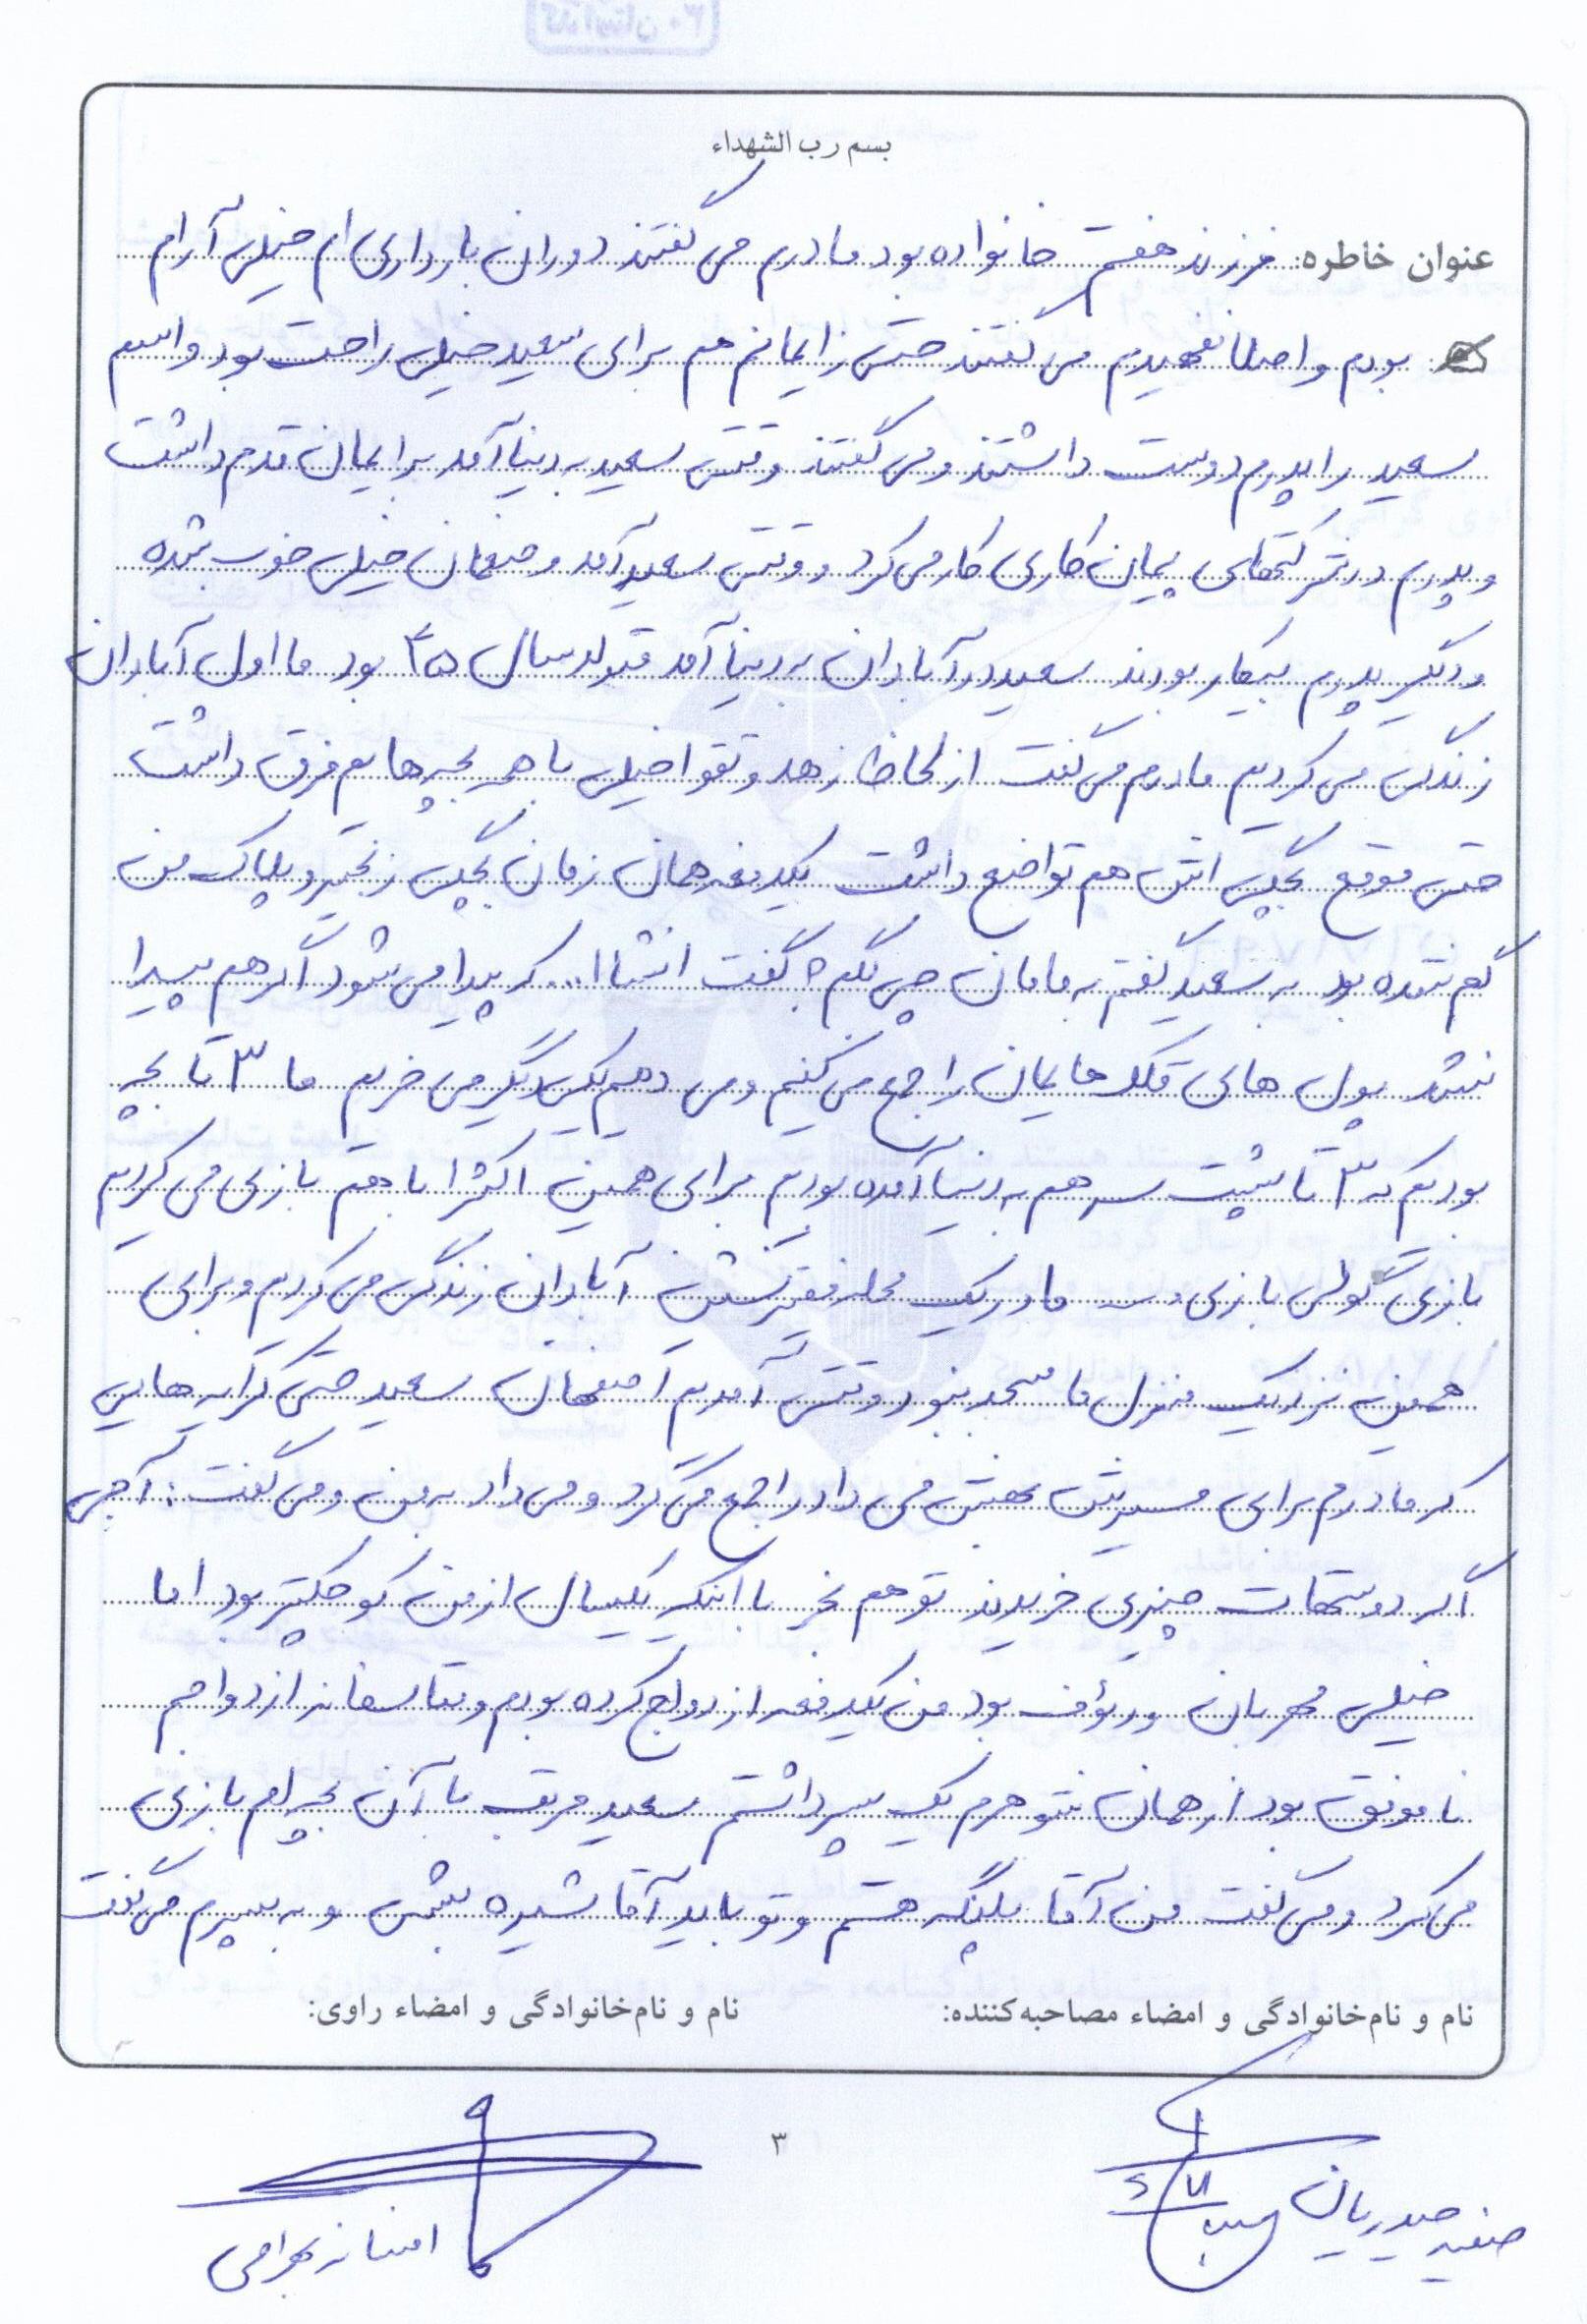 بسم رب الشهداء
عنوان خاطره: فرزند هفتم خانواده بود مادرم می گفتند دوران بارداری ام خیلی آرام
بودم و اصلا نفهمیدم می گفتند حتی زایمانم هم برای سعید خیلی راحت بود و اسم
سعید را پدرم دوست داشتند و می گفتند وقتی سعید به دنیا آمد برایمان قدم داشت
و پدرم در شرکتهای پیمان کاری کار می کرد و وقتی سعید آمد وضعمان خیلی خوب شده
و دیگر پدرم بیکار نبودند سعید در آبادان به دنیا آمد متولد سال ۴۵ بود ما اول آبادان
زندگی می کردیم مادرم می گفت از لحاظ زهد و تقوا خیلی با همه بچه هایم فرق داشت
حتی موقع بچگی اش هم تواضع داشت یکدفعه همان زمان بچگی زنجیر و پلاک من
گم شده بود به سعید گفتم به مامان چی بگم؟ گفت انشاا... که پیدا می شود اگر هم پیدا
نشد پول های قلک هایمان را جمع می کنیم و می دهیم یکی دیگر می خریم ما ۳ تا بچه
بودیم که ۳ تا پشت سر هم به دنیا آمده بودیم برای همین اکثرا با هم بازی می کردیم
بازی گولی بازی و... ما در یک محله فقیر نشین آبادان زندگی می کردیم و برای
همین نزدیک منزل ما مسجد نبود وقتی آمدیم اصفهان سعید حتی کرایه هایی
که مادرم برای مسیرش بهش می داد را جمع می کرد و می داد به من و می گفت: آجی
اگر دوستهات چیزی خریدند تو هم بخر با اینکه یکسال از من کوچکتر بود اما
خیلی مهربان و رئوف بود من یکدفعه ازدواج کرده بودم و متاسفانه ازدواجم
ناموفق بود از همان شوهرم یک پسر داشتم سعید مرتب با آن بچه ام بازی
می کرد و می گفت من آقا پلنگه هستم و تو باید آقا شیره بشی و به پسرم می گفت
نام و نام‌خانوادگی و امضاء مصاحبه‌کننده:
نام و نام‌خانوادگی و امضاء راوی:
۳
صفیه حیدریان
افسانه بهرامی